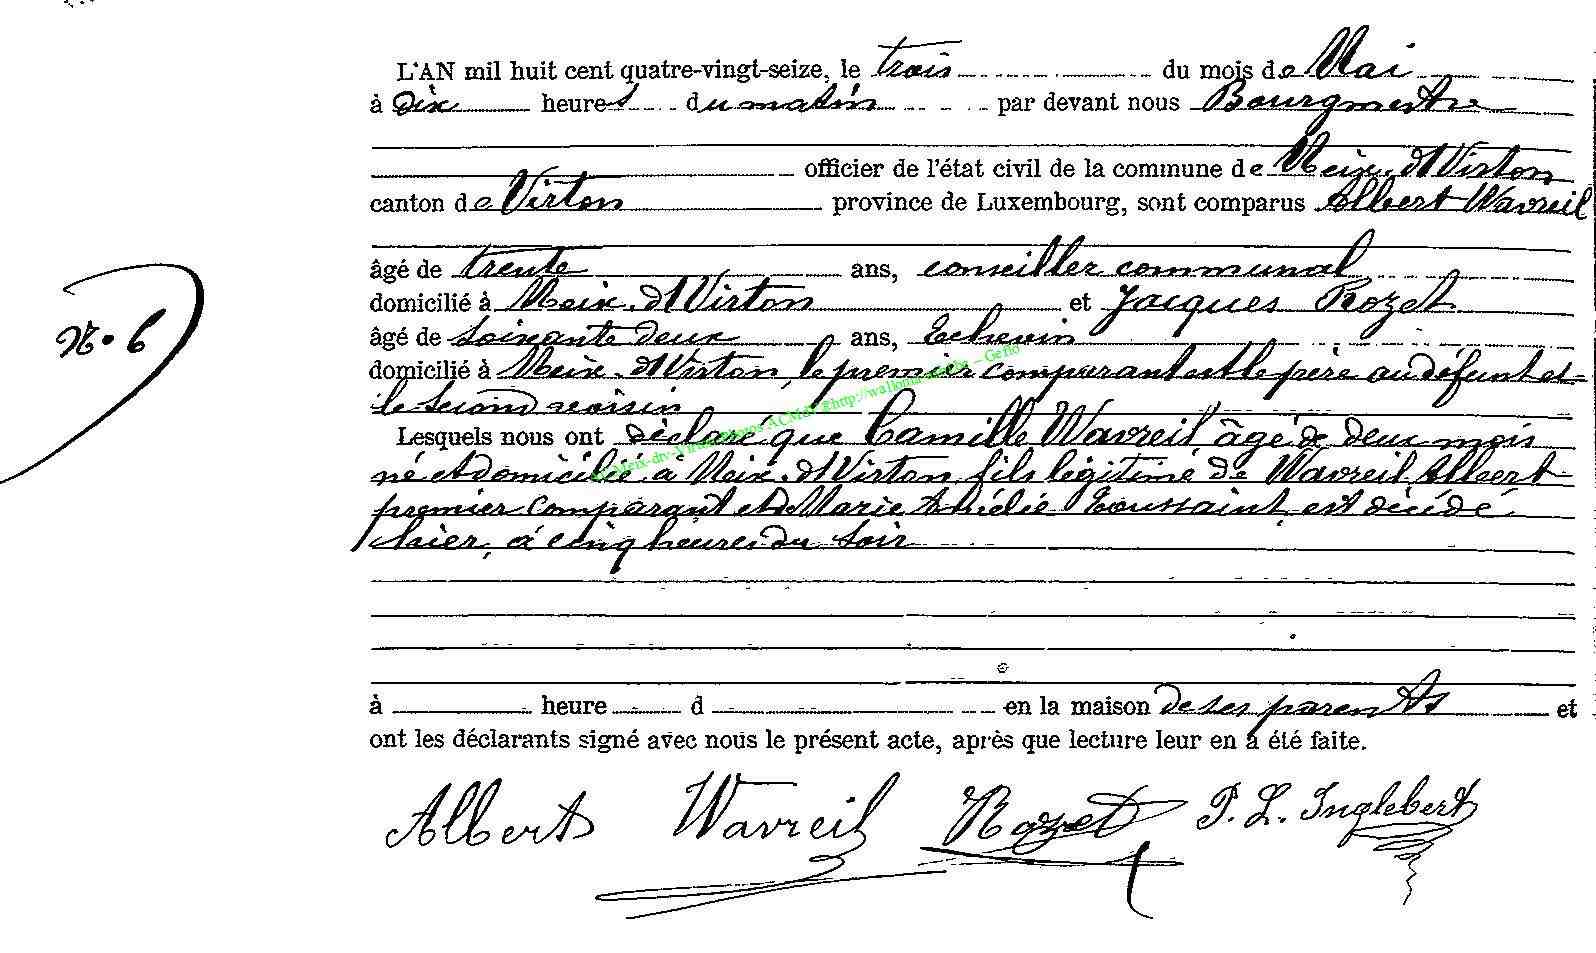 L'AN mil huit cent quatre-vingt-seize, le trois du mois de Mai
à dix heures du matin par devant nous Bourgmestre
officier de l'état civil de la commune de Meix-dt Virton
canton de Virton province de Luxembourg, sont comparus Albert Wavreil
âgé de trente ans, conseiller communal
domicilié à Meix-dt Virton et Jacques Rozet
N° 6
âgé de soixante deux ans, Echevin
domicilié à Meix-dt Virton, le premier comparant est le père au défunt et
le second voisin
Lesquels nous ont déclaré que Camille Wavreil âgé de deux mois
né et domicilié à Meix-dt Virton fils légitime de Wavreil Albert
premier comparant et de Marie Amélie Toussaint, est décédé
hier, à cinq heures du soir
à heure d en la maison de ses parents et
ont les déclarants signé avec nous le présent acte, après que lecture leur en a été faite.
Albert Wavreil Rozet P. L. Inglebert